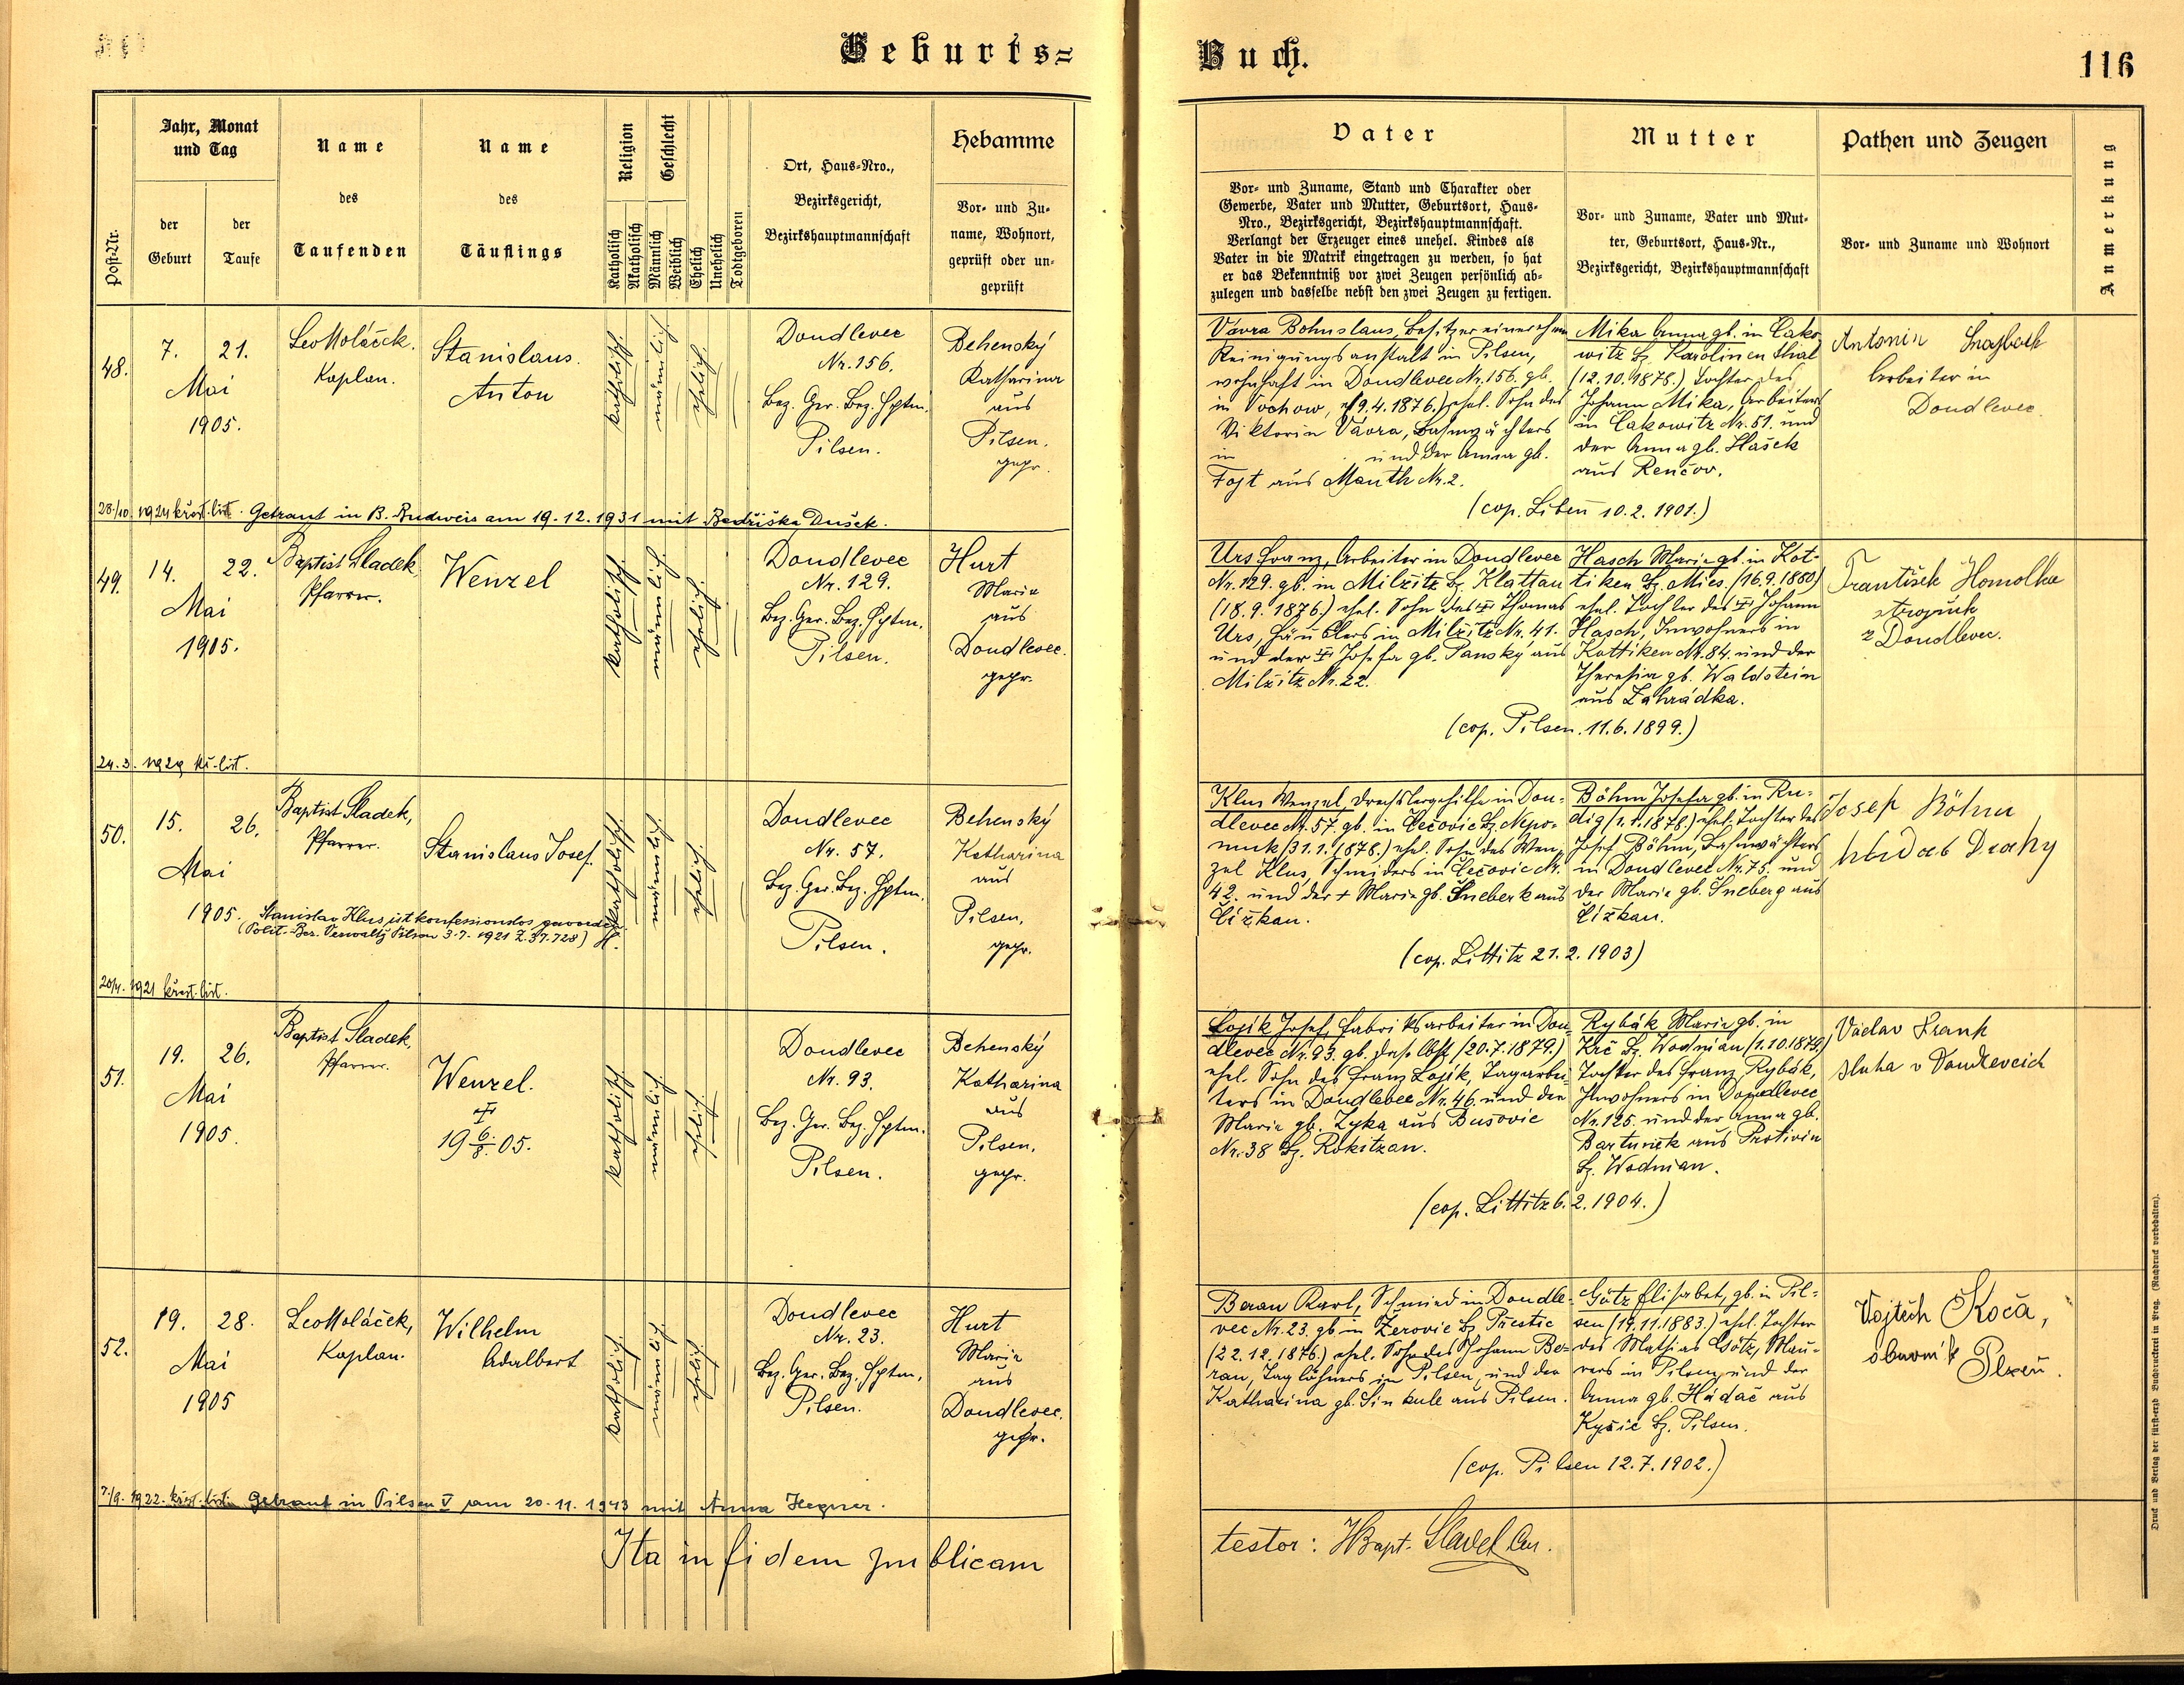 Geburts=
Buch.
116
Post-Nr.
Jahr, Monat
und Tag
der
Geburt
der
Taufe
Name
des
Taufenden
Name
des
Täuflings
Religion
Katholisch
Akatholisch
Geschlecht
Männlich
Weiblich
Ehelich
Unehelich
Todtgeboren
Ort, Haus-Nro.,
Bezirksgericht,
Bezirkshauptmannschaft
Hebamme
Vor- und Zu-
name, Wohnort,
geprüft oder un-
geprüft
Vater
Vor- und Zuname, Stand und Charakter oder
Gewerbe, Vater und Mutter, Geburtsort, Haus-
Nro., Bezirksgericht, Bezirkshauptmannschaft.
Verlangt der Erzeuger eines unehel. Kindes als
Vater in die Matrik eingetragen zu werden, so hat
er das Bekenntniß vor zwei Zeugen persönlich ab-
zulegen und dasselbe nebst den zwei Zeugen zu fertigen.
Mutter
Vor- und Zuname, Vater und Mut-
ter, Geburtsort, Haus-Nr.,
Bezirksgericht, Bezirkshauptmannschaft
Pathen und Zeugen
Vor- und Zuname und Wohnort
Anmerkung
48.
7. 21.
Mai
1905.
Leo Holáček.
Kaplan.
Stanislaus.
Anton
katholisch
männlich
ehelich
Doudlevec
Nr. 156.
Bez. Ger. Bez. Hptm.
Pilsen.
Behenský
Katharina
aus
Pilsen.
gepr.
Vávra Bohuslaus, Besitzer einer chem
Reinigungsanstalt in Pilsen,
wohnhaft in Doudlevec Nr. 156. gb.
in Vochow, 9.4.1876.) ehel. Sohn des
Viktorin Vávra, Bahnwächters
in und der Anna gb.
Fojt aus Mauth Nr. 2.
Mika Anna gb. in Čako
witz Bz. Karolinenthal
(12.10.1878.) Tochter des
Johann Mika, Arbeiters
in Čakowitz Nr. 51. und
der Anna gb. Hašek
aus Renčov.
(cop. Libeň 10.2.1901.)
Antonin
Arbeiter in
Doudlevec.
28/10. 1924 křest. list. Getraut in B. Budweis am 19.12.1931 mit Bedřiška Dušek.
49.
14. 22.
Mai
1905.
Baptist Sladek
Pfarrer.
Wenzel
katholisch
männlich
ehelich
Doudlevec
Nr. 129.
Bez. Ger. Bez. Hptm.
Pilsen.
Hurt
Marie
aus
Doudlevec.
gepr.
Urs Franz, Arbeiter in Doudlevec
Nr. 129. gb. in Milžitz Bz. Klattau
(18.9.1876.) ehel. Sohn des Thomas
Urs, Häuslers in Milžitz Nr. 41.
und der Josefa gb. Panský aus
Milžitz Nr. 22.
Hasch Marie gb. in Kot-
tiken Bz. Mies. (16.9.1880)
ehel. Tochter des Johann
Hasch, Inwohners in
Kottiken Nr. 84. und der
Theresia gb. Waldstein
aus Zahrádka.
(cop. Pilsen. 11.6.1899.)
František Homolka
z Doudlevec.
24.3. 1929 kř. list.
50.
15. 26.
Mai
1905.
Baptist Sladek,
Pfarrer.
Stanislaus Josef.
Stanislav Klus ist konfessionslos geworden
(Polit. Bez. Verwaltg Pilsen 3.7.1921 Z. 37.728)
katholisch
männlich
ehelich
Doudlevec
Nr. 57.
Bez. Ger. Bez. Hptm.
Pilsen.
Behenský
Katharina
aus
Pilsen.
gepr.
Klus Wenzel, Drechslergehilfe in Dou-
dlevec Nr. 57. gb. in Čečovic Bz. Nepo-
muk (31.1.1878.) ehel. Sohn des Wen-
zel Klus, Schneiders in Čečovic Nr.
42. und der + Marie gb. Šneberk aus
Čižkau.
Böhm Josefa gb. in Ru-
dig (1.1.1878.) ehel. Tochter des
Josef Böhm, Bahnwächters
in Doudlevec Nr. 75. und
der Marie gb. Šneberg aus
Čižkau.
(cop. Littitz 21.2.1903)
Josef Böhm
20/4. 1921 křest. list.
51.
19. 26.
Mai
1905.
Baptist Sladek,
Pfarrer.
Wenzel.
19 6/8. 05.
katholisch
männlich
ehelich
Doudlevec
Nr. 93.
Bez. Ger. Bez. Hptm.
Pilsen.
Behenský
Katharina
aus
Pilsen.
gepr.
Lojík Josef, Fabriksarbeiter in Dou-
dlevec Nr. 93. gb. daselbst (20.7.1879.)
ehel. Sohn des Franz Lojík, Tagarbei-
ters in Doudlevec Nr. 46. und der
Marie gb. Zyka aus Bušovic
Nr. 38 Bz. Rokitzan.
Rybák Marie gb. in
Krč Bz. Wodnian (1.10.1879.)
Tochter des Franz Rybák,
Inwohners in Doudlevec
Nr. 125. und der Anna gb.
Bartuněk aus Protivin
Bz. Wodnian.
(cop. Littitz 6.2.1904.)
Václav Frank
sluha v Doudlevcích
52.
19. 28.
Mai
1905
Leo Holáček,
Kaplan.
Wilhelm
Adalbert
katholisch
männlich
ehelich
Doudlevec
Nr. 23.
Bez. Ger. Bez. Hptm.
Pilsen.
Hurt
Marie
aus
Doudlevec.
gepr.
Beran Karl, Schmied in Doudle-
vec Nr. 23. gb. in Žerovic Bz. Přestic
(22.12.1876.) ehel. Sohn des Johann Be-
ran, Taglöhners in Pilsen, und der
Katharina gb. Sinkule aus Pilsen.
Götz Elisabet, gb. in Pil-
sen (19.11.1883.) ehel. Tochter
des Mathias Götz, Mau-
rers in Pilsen, und der
Anna gb. Hádač aus
Kyšic Bz. Pilsen.
(cop. Pilsen 12.7.1902.)
Vojtěch Koča,
obuvník Plzeň.
7/9. 1922. křest. list. Getraut in Pilsen V am 20.11.1943 mit Anna Hegner.
Ita in fidem publicam
testor: JBapt. Sladek
Druck und Verlag der fürsterzb Buchdruckerei in Prag. (Nachdruck vorbehalten).